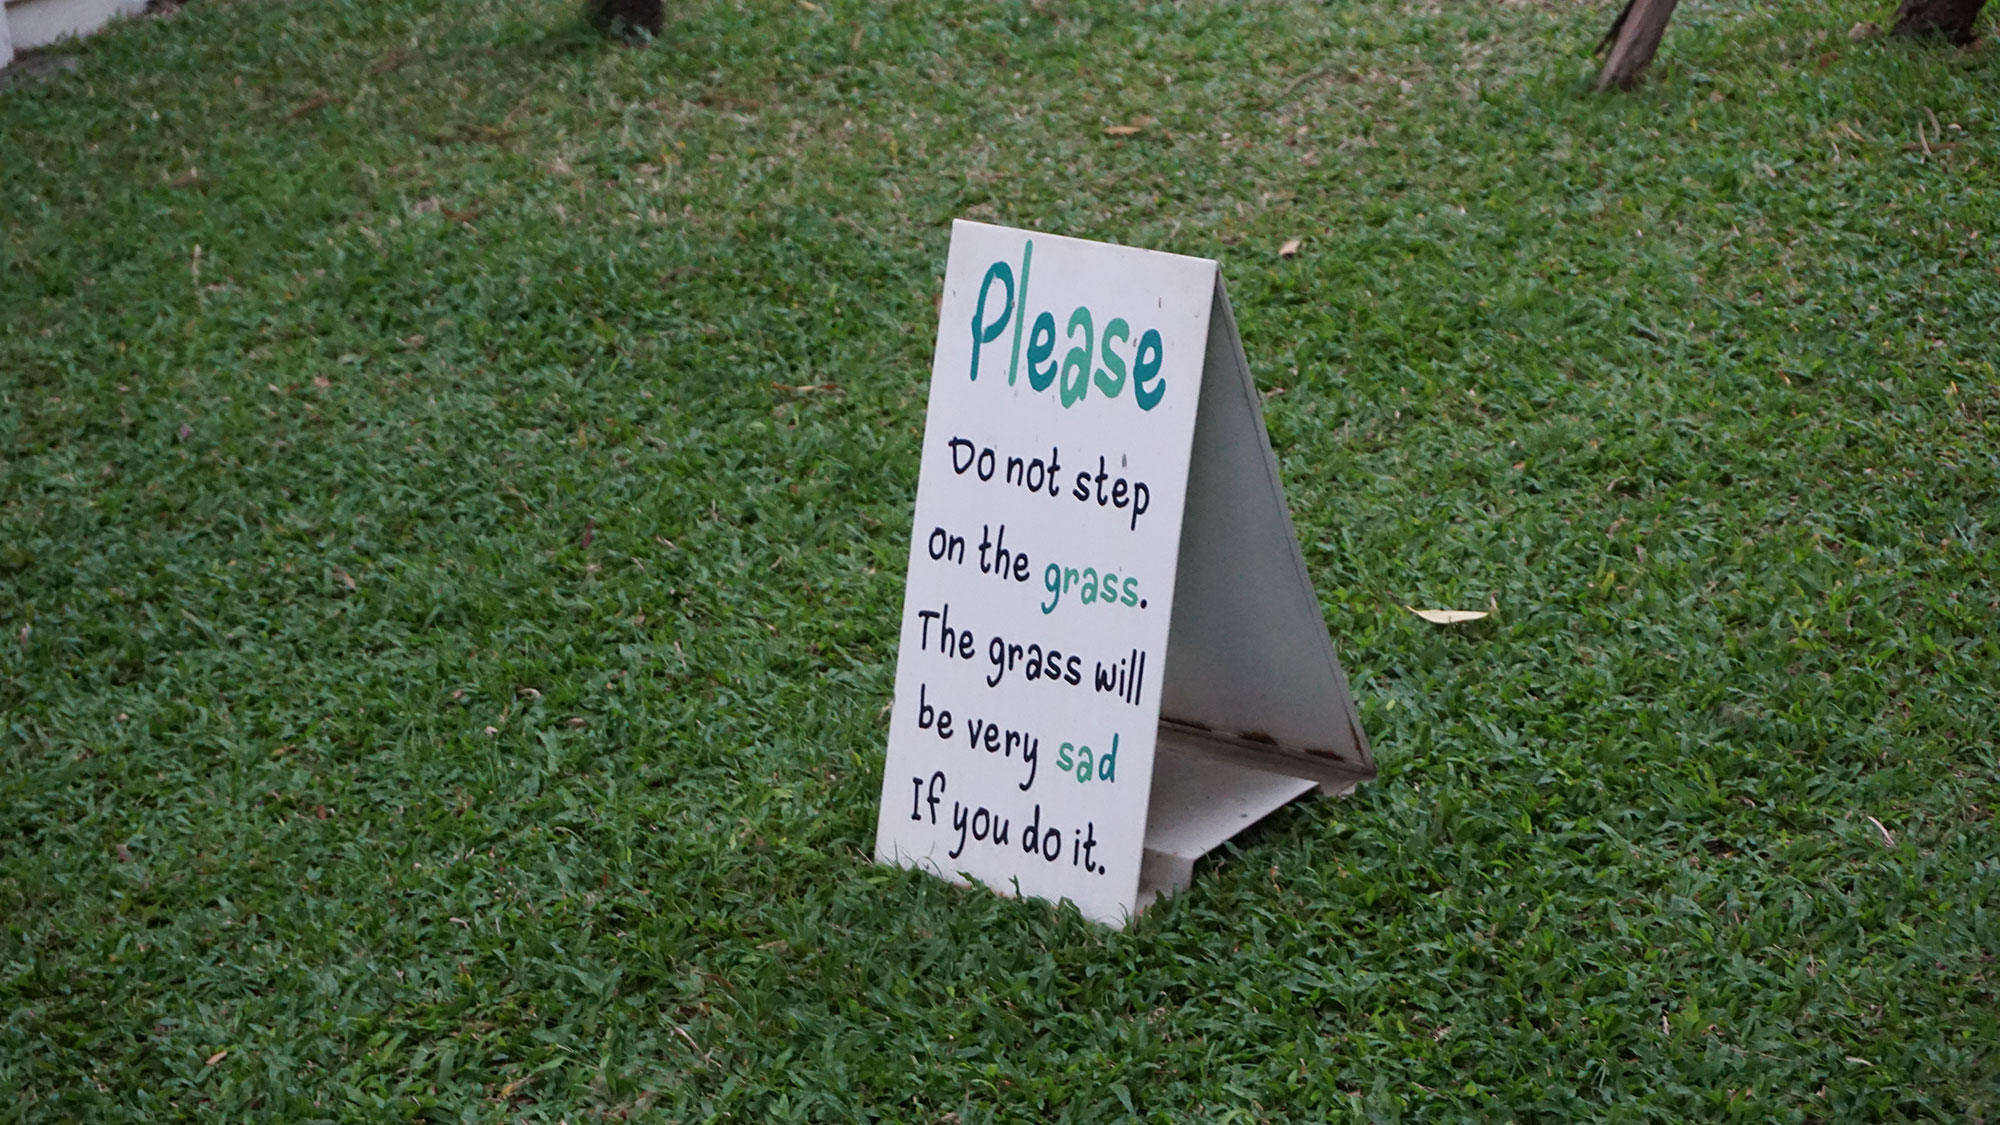 Please
Do not step
on the grass.
The grass will
be very sad
If you do it.